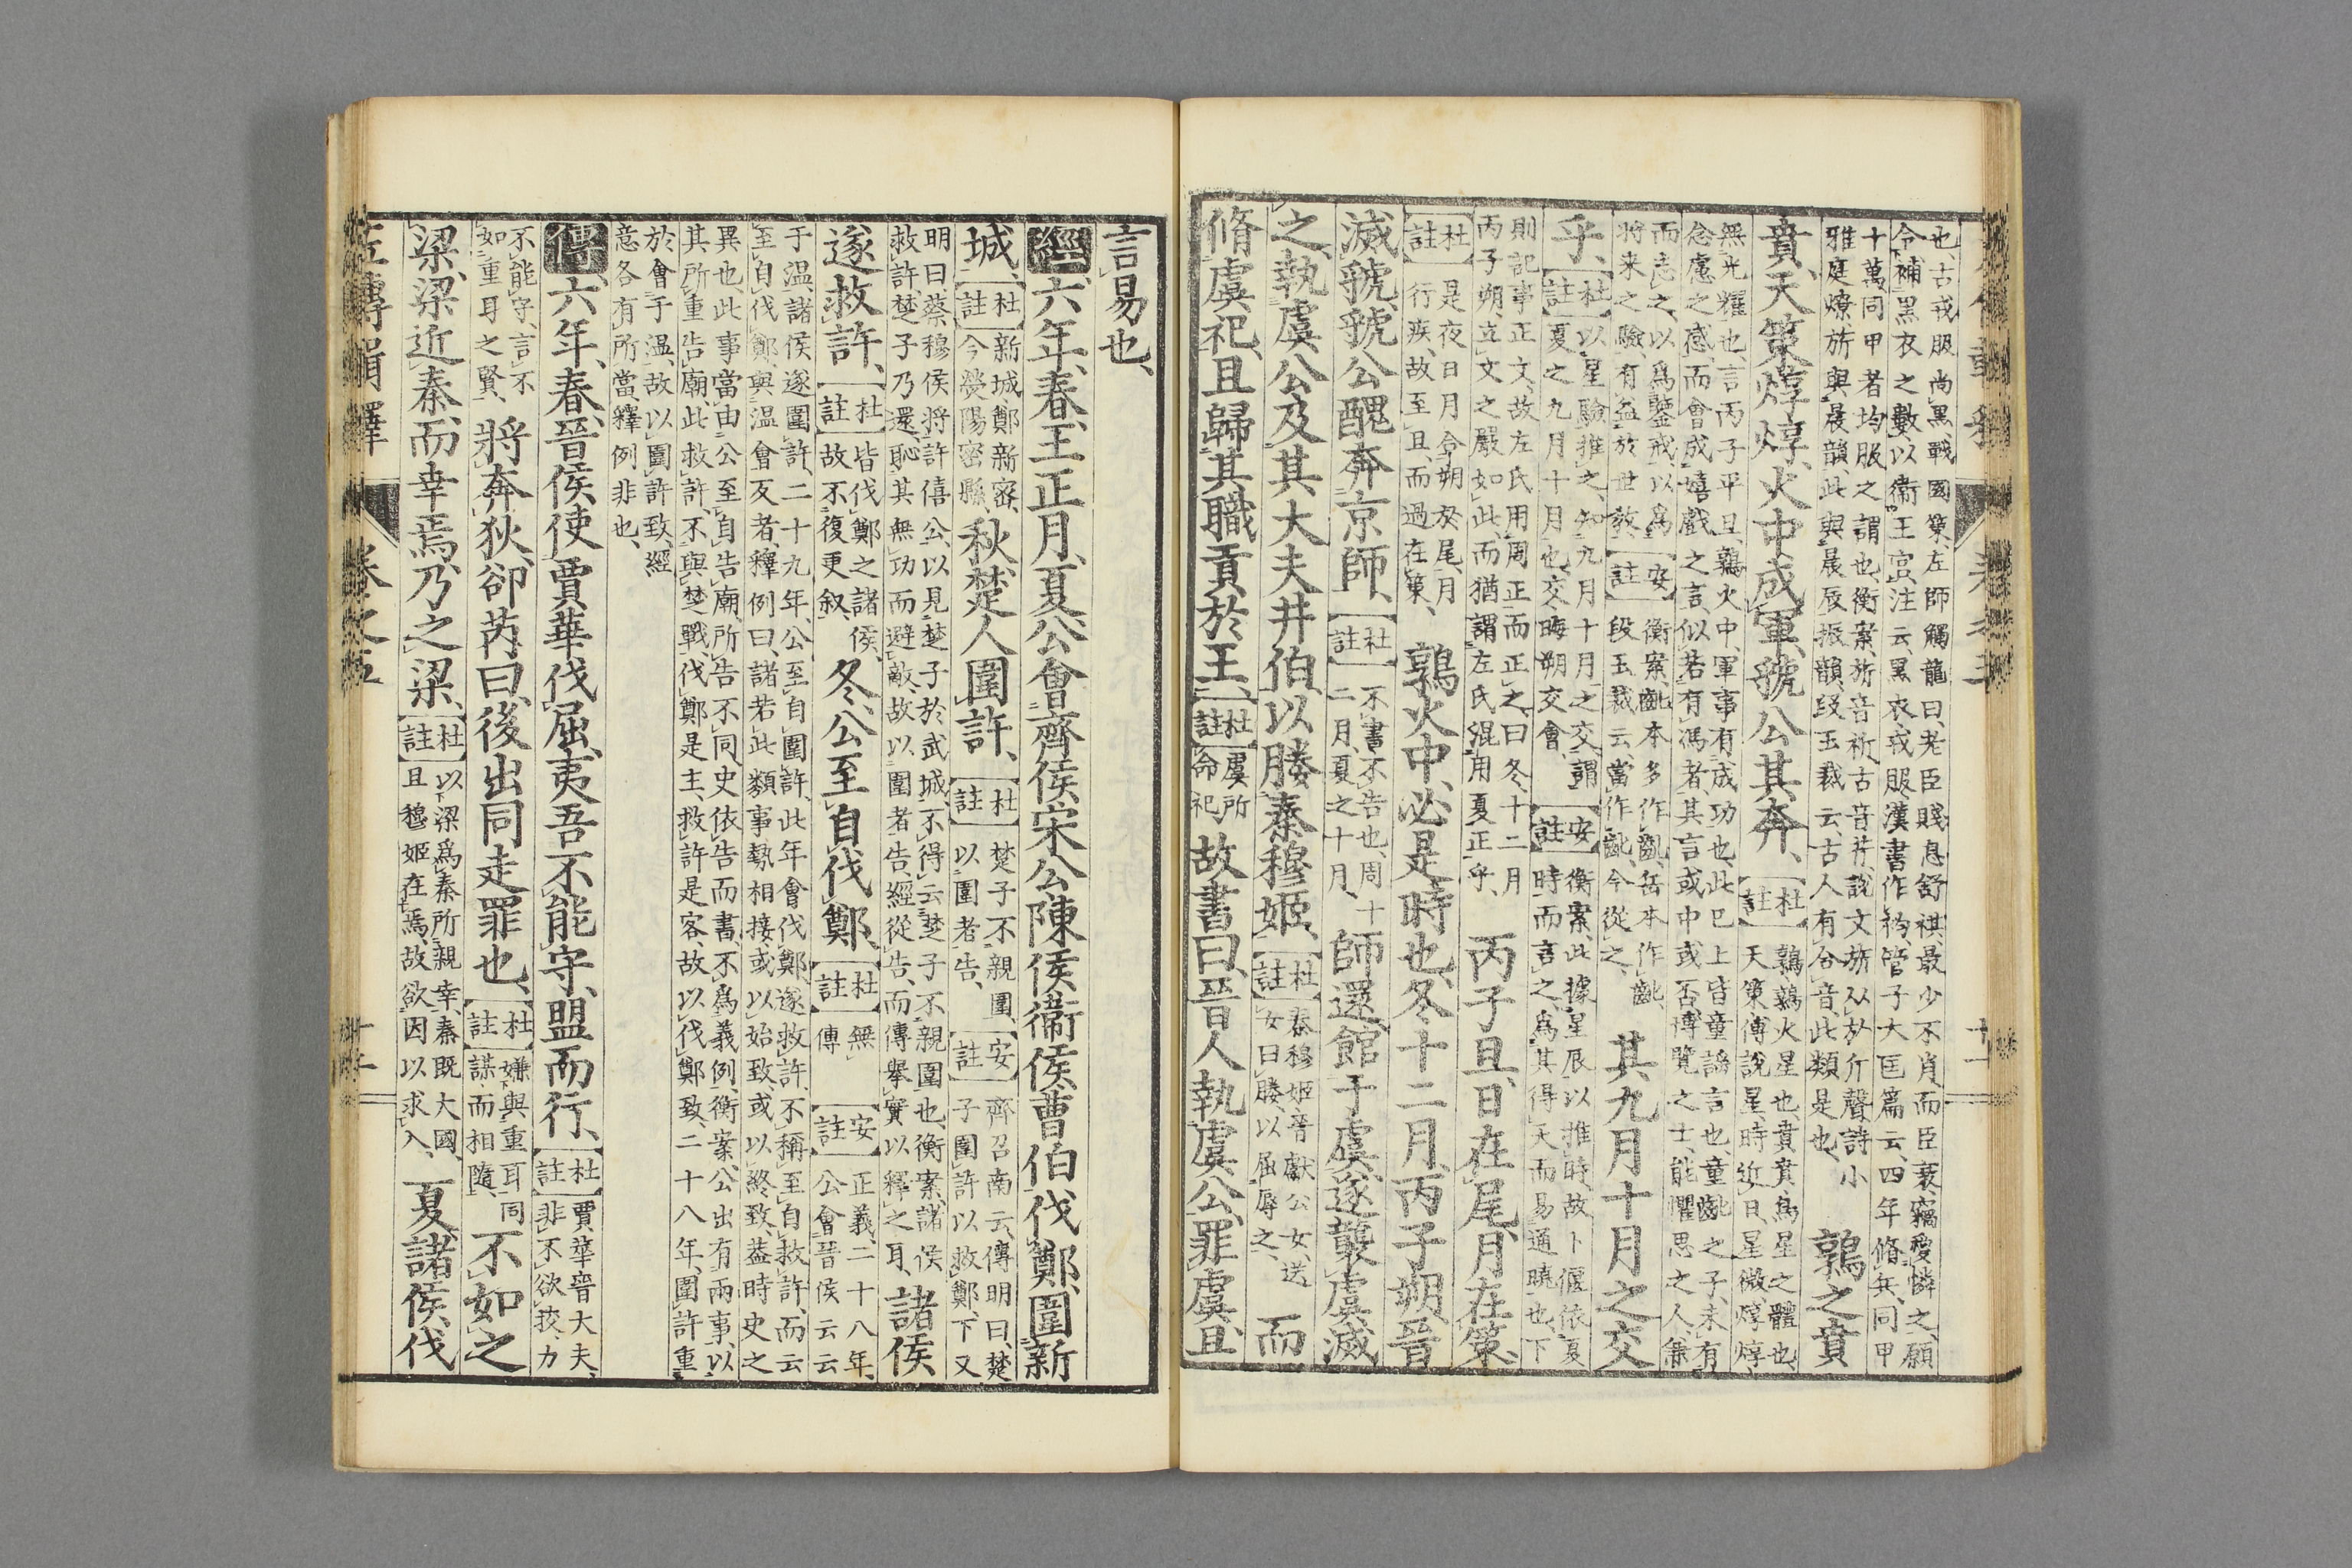 也、古戎服尚黑、戰國策、左師觸龍曰、老臣賤息舒祺最少不肖而臣衰竊愛憐之、願
令補黑衣之數、以衞王宮、注云、黑衣、戎服、漢書作袀、管子大匡篇云、四年脩兵、同甲
十萬、同甲者、均服之謂也、衡案、旂音祈、古音芹、說文、旂从㫃斤聲、詩小
雅庭燎、旂與晨韻、此與晨辰振韻、段玉裁云、古人有合音、此類是也、鶉之賁
賁、天策焞焞、火中成軍、虢公其奔、杜註 鶉鶉火星也、賁賁、鳥星之體也、
天策、傅說星、時近日、星微、焞焞
無光耀也、言丙子平旦、鶉火中、軍事有成功也、此已上皆童謠言也、童齔之子、未有
念慮之感、而會成嬉戲之言、似若有馮者、其言或中或否、博覽之士、能懼思之人、兼
而志之、以爲鑒戒、以爲
將來之驗、有益於世敎、安註 衡案、齔本多作齓、岳本作齔、
段玉裁云、當作齔、今從之、其九月十月之交
乎、杜註 以星驗推之、知九月十月之交、謂
夏之九月十月也、交、晦朔交會、安註 衡案、此據星辰以推時、故卜偃依夏
時而言之、爲其得天而易通曉也、下
則記事正文、故左氏用周正而正之曰冬十二月
丙子朔、立文之嚴如此、而猶謂左氏混用夏正乎、丙子旦、日在尾、月在策、
杜註 是夜日月合朔於尾、月
行疾、故至旦、而過在策、鶉火中、必是時也、冬十二月、丙子朔、晉
滅虢、虢公醜奔京師、杜註 不書、不告也、周十
二月、夏之十月、師還、館于虞、遂襲虞、滅
之、執虞公及其大夫井伯、以媵秦穆姬、杜註 秦穆姬、晉獻公女、送
女曰媵、以屈辱之、而
脩虞祀、且歸其職貢於王、杜註 虞所
命祀 故書曰、晉人執虞公、罪虞、且
言易也、
經六年、春、王正月、夏、公會齊侯宋公陳侯衞侯曹伯、伐鄭、圍新
城、杜註 新城、鄭新密、
今滎陽密縣、秋、楚人圍許、杜註 楚子不親圍、
以圍者告、安註 齊召南云、傳明曰、楚
子圍許以救鄭、下又
明曰蔡穆侯將許僖公、以見楚子於武城、不得云楚子不親圍也、衡案、諸侯
救許、楚子乃還、恥其無功而避敵、故以圍者告、經從告、而傳舉實以釋之耳、諸侯
遂救許、杜註 皆伐鄭之諸侯、
故不復更叙、冬、公至自伐鄭、杜註 無
傳 安註 正義、二十八年、
公會晉侯云云
于溫、諸侯遂圍許、二十九年、公至自圍許、此年會伐鄭、遂救許、不稱至自救許、而云
至自伐鄭、與溫會反者、釋例曰、諸若此類、事勢相接、或以始致、或以終致、蓋時史之
異也、此事當由公至自告廟、所告不同、史依告而書、不爲義例、衡案、公出有兩事、以
其所重告廟、此救許、不與楚戰、伐鄭是主、救許是客、故以伐鄭致、二十八年、圍許重
於會于溫、故以圍許致、經
意各有所當、釋例非也、
傳六年、春、晉侯使賈華伐屈、夷吾不能守、盟而行、杜註 賈華、晉大夫、
非不欲挍、力
不能守、言不
如重耳之賢、將奔狄、郤芮曰、後出同走、罪也、杜註 嫌與重耳同
謀而相隨、不如之
梁、梁近秦、而幸焉、乃之梁、杜註 以梁爲秦所親幸、秦旣大國、
且穆姬在焉、故欲因以求入、夏、諸侯伐
左傳輯釋 卷之五